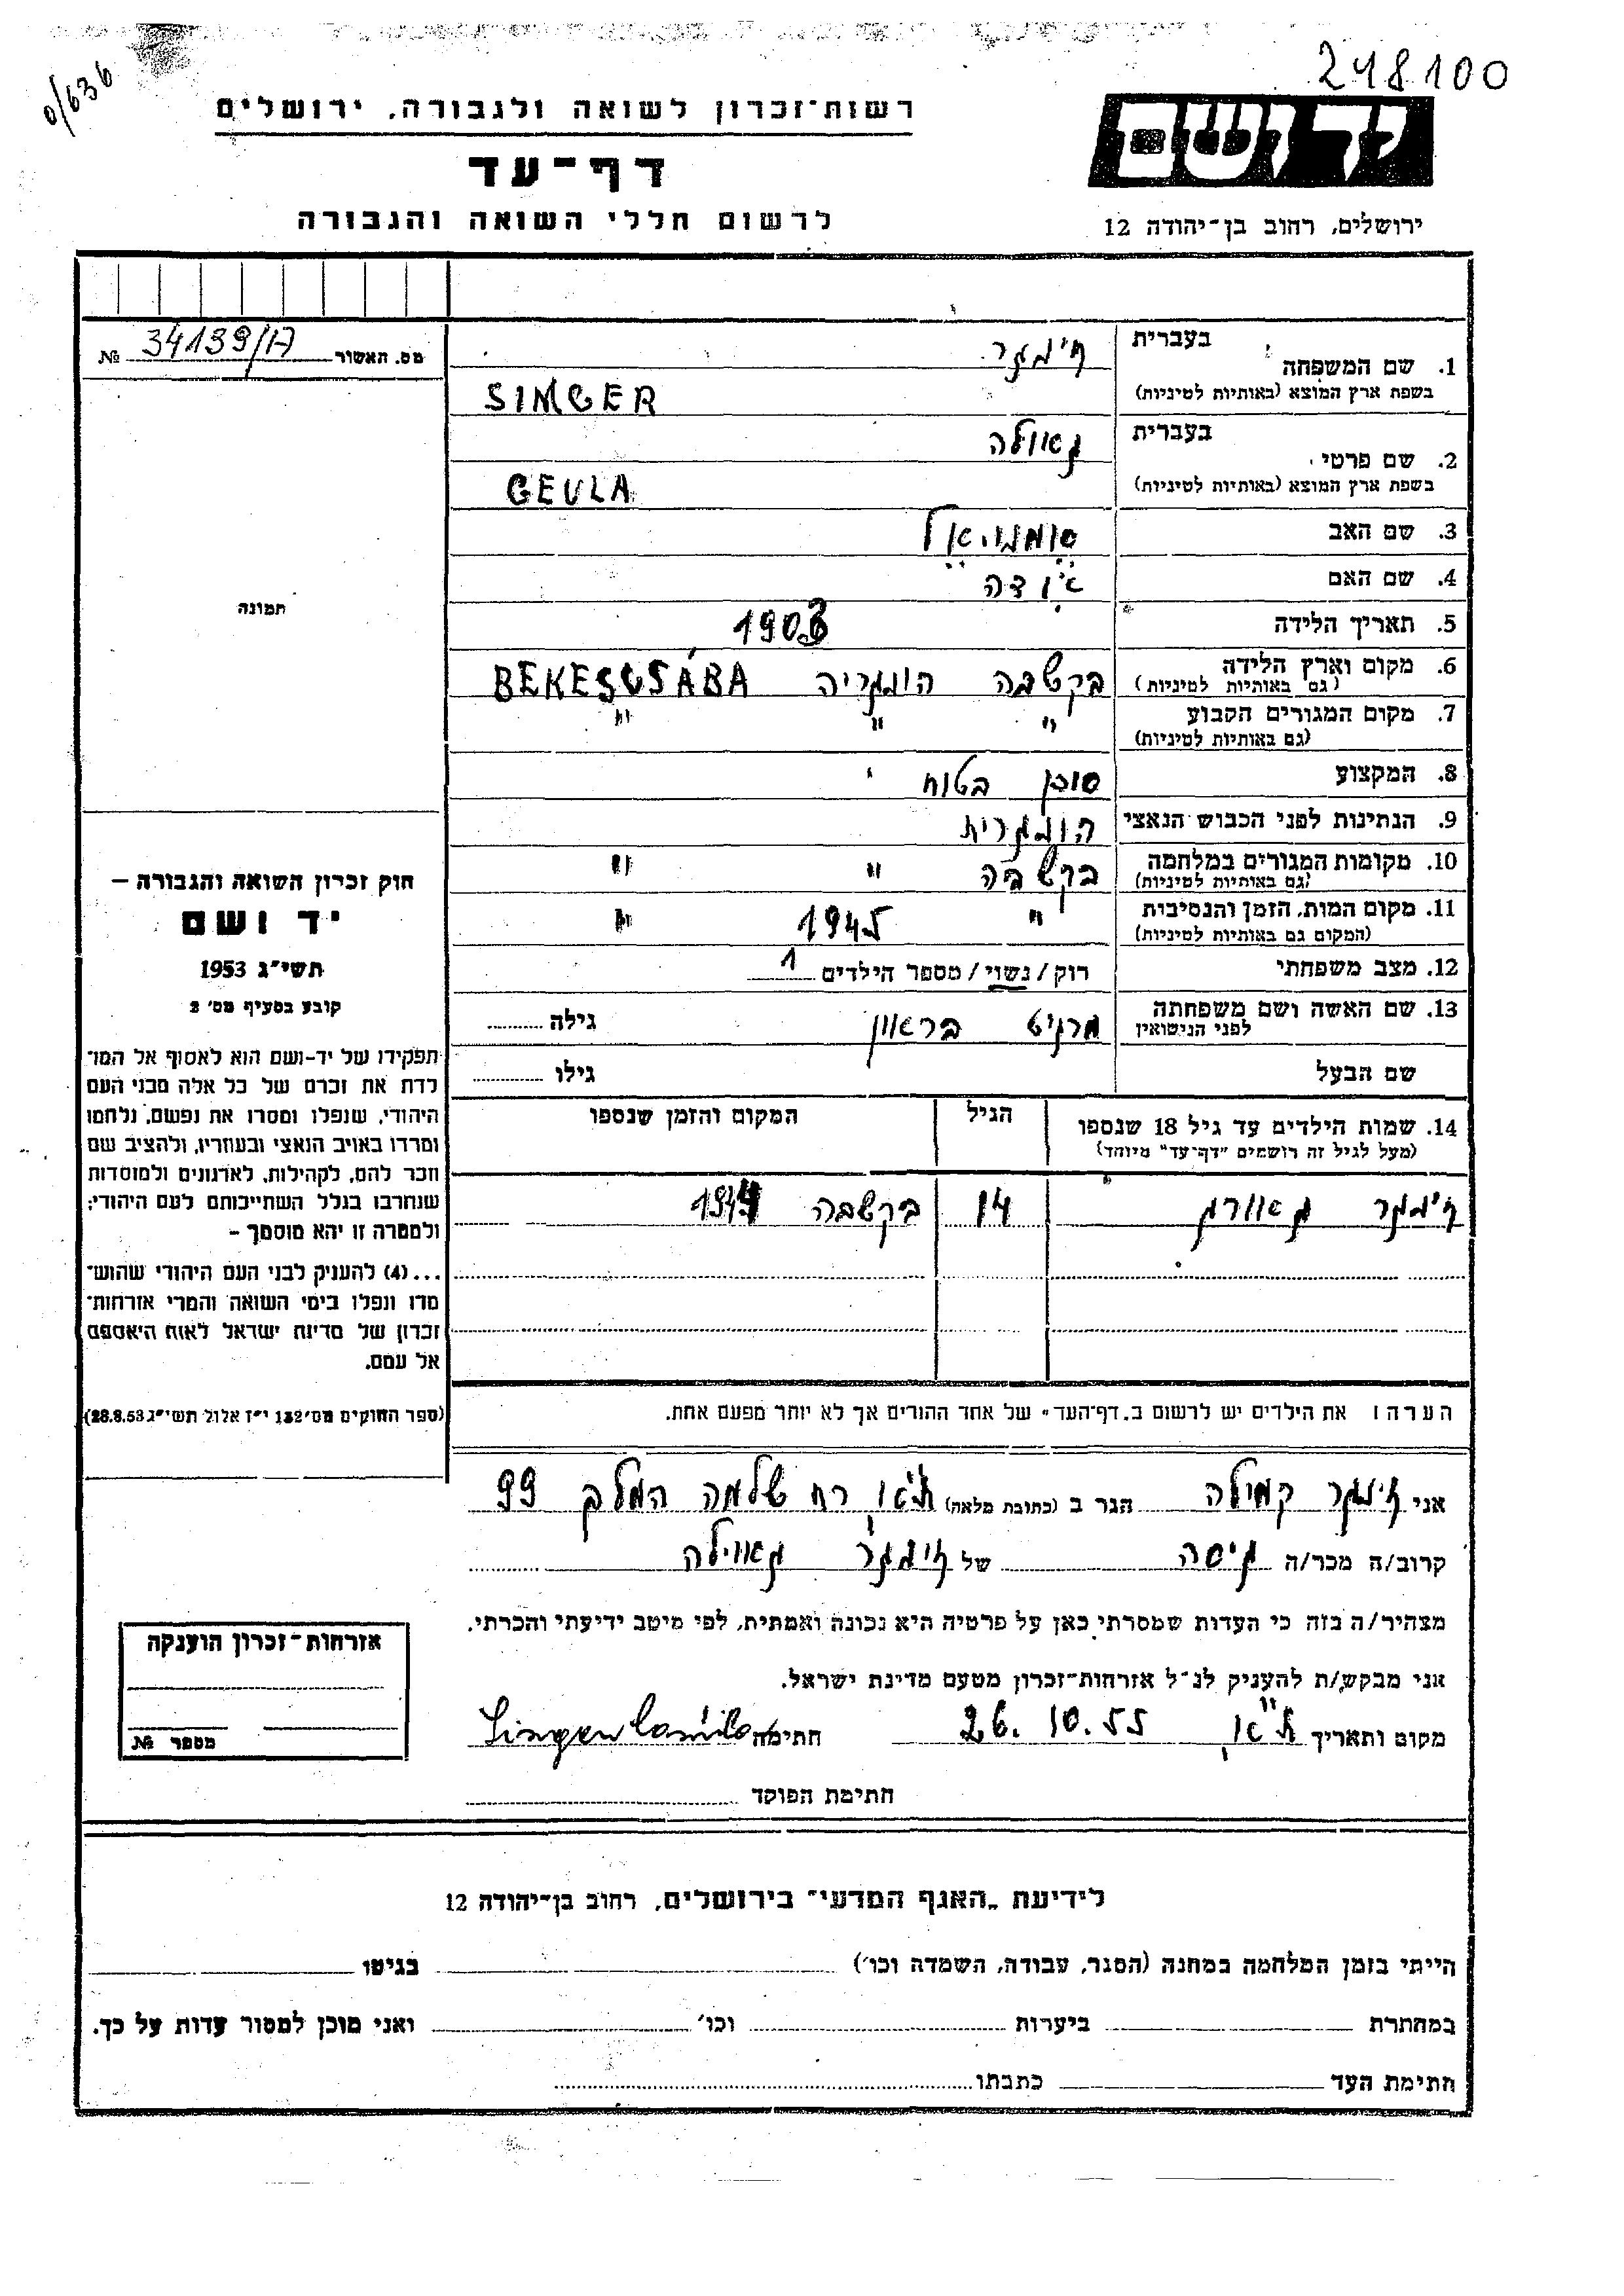 248100
0/636
יד ושם
רשות־זכרון לשואה ולגבורה, ירושלים
דף־עד
לרשום חללי השואה והגבורה
ירושלים, רחוב בן־יהודה 12
מס. האשור 34139/A №
בעברית
1. שם המשפחה זינגר
בשפת ארץ המוצא (באותיות לטיניות) SINGER
בעברית
2. שם פרטי גאולה
בשפת ארץ המוצא (באותיות לטיניות) GEULA
3. שם האב
4. שם האם
תמונה
5. תאריך הלידה 1903
6. מקום וארץ הלידה בקשבה הונגריה BEKESCSABA
(גם באותיות לטיניות)
7. מקום המגורים הקבוע " " "
(גם באותיות לטיניות)
8. המקצוע סוכן בטוח
9. הנתינות לפני הכבוש הנאצי הונגרית
10. מקומות המגורים במלחמה בקשבה " "
(גם באותיות לטיניות)
11. מקום המות, הזמן והנסיבות " 1945 "
(המקום גם באותיות לטיניות)
12. מצב משפחתי רוק/נשוי/ מספר הילדים 1
13. שם האשה ושם משפחתה מרגיט בראון גילה
לפני הנישואין
שם הבעל גילו
14. שמות הילדים עד גיל 18 שנספו הגיל המקום והזמן שנספו
(מעל לגיל זה רושמים "דף־עד" מיוחד)
זינגר גאורג 14 בקשבה 1944
הערה: את הילדים יש לרשום ב„דף־העד" של אחד ההורים אך לא יותר מפעם אחת.
חוק זכרון השואה והגבורה –
יד ושם
תשי"ג 1953
קובע בסעיף מס' 2
תפקידו של יד-ושם הוא לאסוף אל המו־
לדת את זכרם של כל אלה מבני העם
היהודי, שנפלו ומסרו את נפשם, נלחמו
ומרדו באויב הנאצי ובעוזריו, ולהציב שם
וזכר להם, לקהילות, לארגונים ולמוסדות
שנחרבו בגלל השתייכותם לעם היהודי;
ולמטרה זו יהא מוסמך –
...(4) להעניק לבני העם היהודי שהוש־
מדו ונפלו בימי השואה והמרי אזרחות־
זכרון של מדינת ישראל לאות היאספם
אל עמם.
(ספר החוקים מס' 132 י"ז אלול תשי"ג 28.8.53)
אני זינגר קמילה הגר ב (כתובת מלאה) ת"א רח שלמה המלך 99
קרוב/ה מכר/ה גיסה של זינגר גאולה
מצהיר/ה בזה כי העדות שמסרתי כאן על פרטיה היא נכונה ואמתית, לפי מיטב ידיעתי והכרתי.
אני מבקש/ת להעניק לנ"ל אזרחות־זכרון מטעם מדינת ישראל.
מקום ותאריך ת"א 26.10.55 חתימה Singer Camila
חתימת הפוקד
אזרחות־זכרון הוענקה
מספר №
לידיעת „האגף המדעי" בירושלים, רחוב בן־יהודה 12
הייתי בזמן המלחמה במחנה (הסגר, עבודה, השמדה וכו') בגיטו
במחתרת ביערות וכו' ואני מוכן למסור עדות על כך.
חתימת העד כתבתו